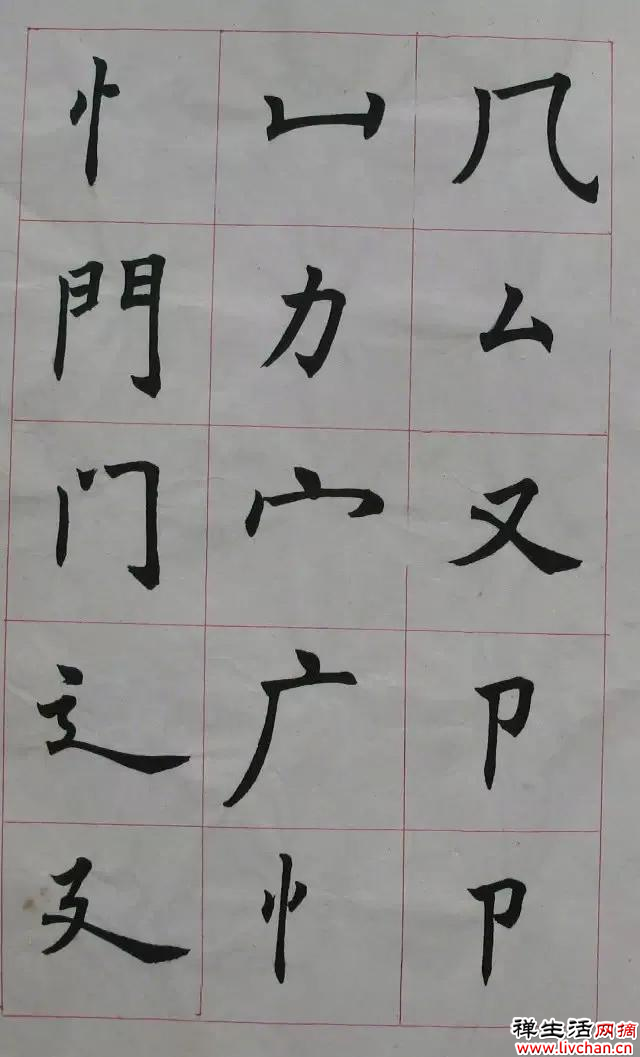 几厶又卩卩
凵力宀广忄
忄門门辶廴
禅生活网摘
www.livchan.cn